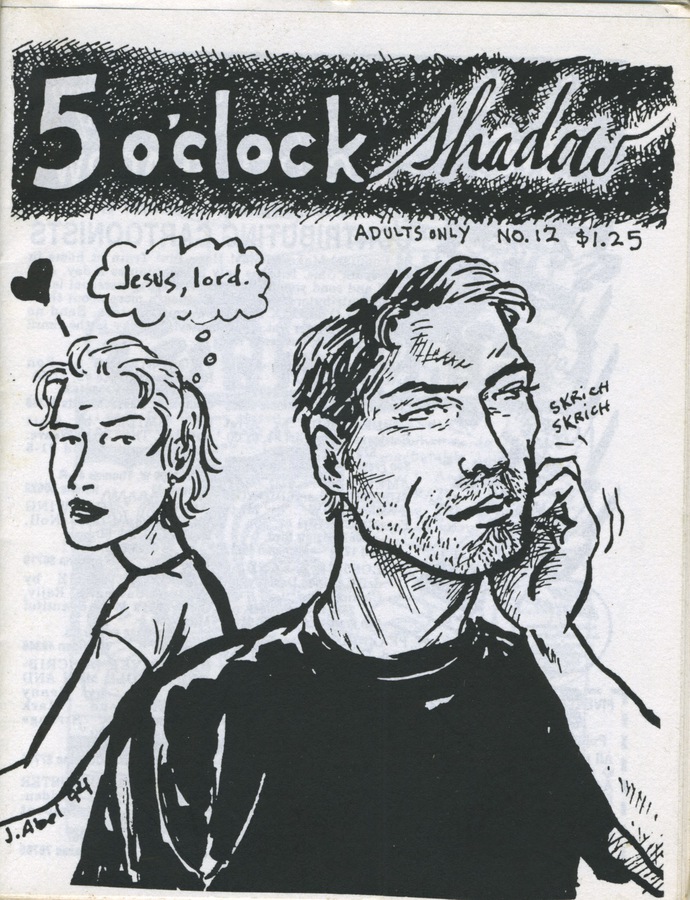 5 o'clock shadow
ADULTS ONLY NO.12 $1.25
Jesus, lord.
SKRICH
SKRICH
J. Abel 94